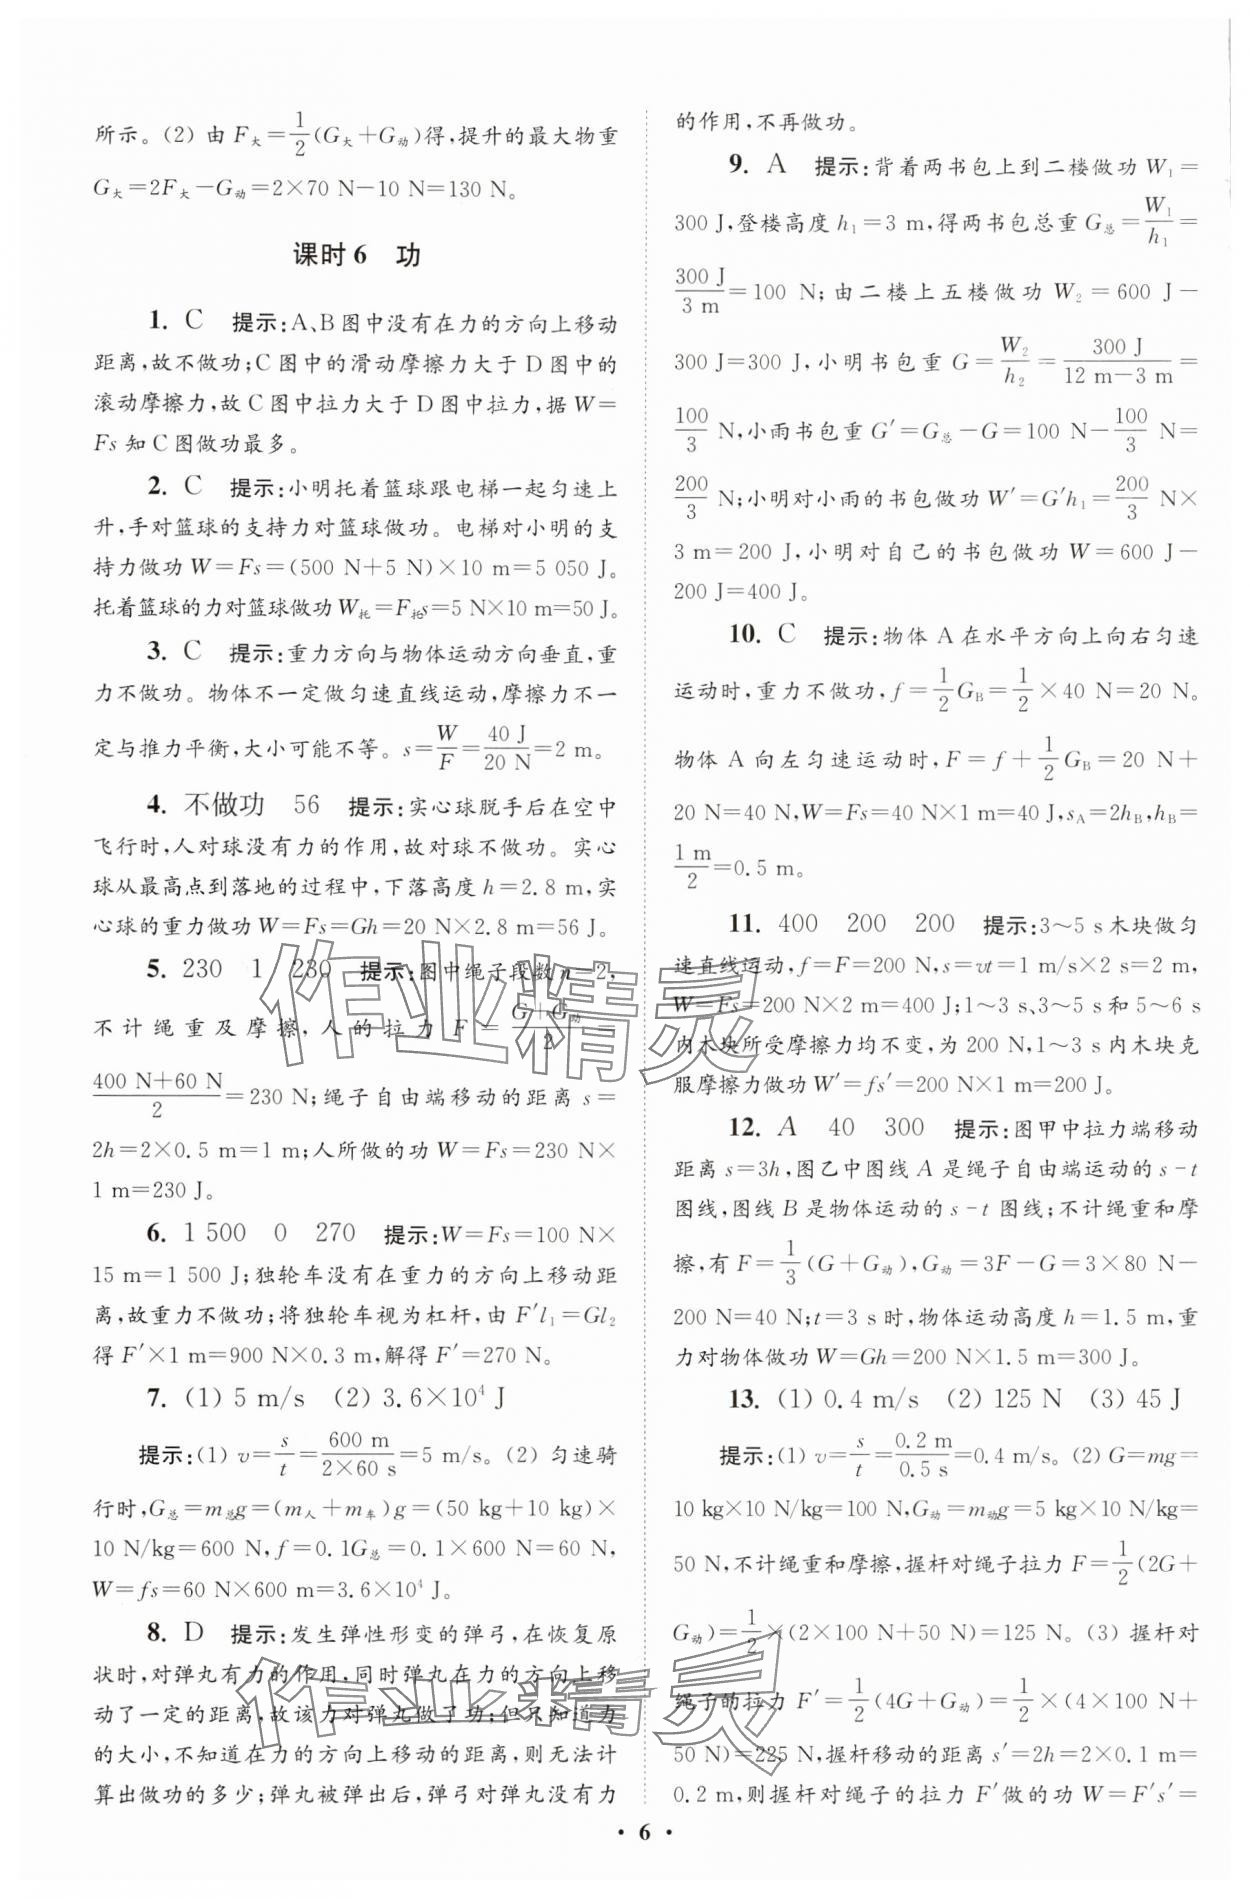 所示。(2) 由 F大=1/2(G大+G动)得,提升的最大物重
G大=2F大-G动=2×70 N-10 N=130 N。
课时6 功
1. C 提示:A、B图中没有在力的方向上移动
距离,故不做功;C图中的滑动摩擦力大于D图中的
滚动摩擦力,故C图中拉力大于D图中拉力,据W=
Fs知C图做功最多。
2. C 提示:小明托着篮球跟电梯一起匀速上
升,手对篮球的支持力对篮球做功。电梯对小明的支
持力做功W=Fs=(500 N+5 N)×10 m=5 050 J。
托着篮球的力对篮球做功W托=F托s=5 N×10 m=50 J。
3. C 提示:重力方向与物体运动方向垂直,重
力不做功。物体不一定做匀速直线运动,摩擦力不一
定与推力平衡,大小可能不等。s=W/F=40 J/20 N=2 m。
4. 不做功 56 提示:实心球脱手后在空中
飞行时,人对球没有力的作用,故对球不做功。实心
球从最高点到落地的过程中,下落高度h=2.8 m,实
心球的重力做功W=Fs=Gh=20 N×2.8 m=56 J。
5. 230 1 230 提示:图中绳子段数n=2,
不计绳重及摩擦,人的拉力F=(G+G动)/2=
(400 N+60 N)/2=230 N;绳子自由端移动的距离s=
2h=2×0.5 m=1 m;人所做的功W=Fs=230 N×
1 m=230 J。
6. 1 500 0 270 提示:W=Fs=100 N×
15 m=1 500 J;独轮车没有在重力的方向上移动距
离,故重力不做功;将独轮车视为杠杆,由F′l₁=Gl₂
得F′×1 m=900 N×0.3 m,解得F′=270 N。
7. (1) 5 m/s (2) 3.6×10⁴ J
提示:(1) v=s/t=600 m/(2×60 s)=5 m/s。(2) 匀速骑
行时,G总=m总g=(m人+m车)g=(50 kg+10 kg)×
10 N/kg=600 N,f=0.1G总=0.1×600 N=60 N,
W=fs=60 N×600 m=3.6×10⁴ J。
8. D 提示:发生弹性形变的弹弓,在恢复原
状时,对弹丸有力的作用,同时弹丸在力的方向上移
动了一定的距离,故该力对弹丸做了功;但只知道力
的大小,不知道在力的方向上移动的距离,则无法计
算出做功的多少;弹丸被弹出后,弹弓对弹丸没有力
的作用,不再做功。
9. A 提示:背着两书包上到二楼做功W₁=
300 J,登楼高度h₁=3 m,得两书包总重G总=W₁/h₁=
300 J/3 m=100 N;由二楼上五楼做功W₂=600 J-
300 J=300 J,小明书包重G=W₂/h₂=300 J/(12 m-3 m)=
100/3 N,小雨书包重G′=G总-G=100 N-100/3 N=
200/3 N;小明对小雨的书包做功W′=G′h₁=200/3 N×
3 m=200 J,小明对自己的书包做功W=600 J-
200 J=400 J。
10. C 提示:物体A在水平方向上向右匀速
运动时,重力不做功,f=1/2G_B=1/2×40 N=20 N。
物体A向左匀速运动时,F=f+1/2G_B=20 N+
20 N=40 N,W=Fs=40 N×1 m=40 J,s_A=2h_B,h_B=
1 m/2=0.5 m。
11. 400 200 200 提示:3~5 s木块做匀
速直线运动,f=F=200 N,s=vt=1 m/s×2 s=2 m,
W=Fs=200 N×2 m=400 J;1~3 s、3~5 s和5~6 s
内木块所受摩擦力均不变,为200 N,1~3 s内木块克
服摩擦力做功W′=fs′=200 N×1 m=200 J。
12. A 40 300 提示:图甲中拉力端移动
距离s=3h,图乙中图线A是绳子自由端运动的s-t
图线,图线B是物体运动的s-t图线;不计绳重和摩
擦,有F=1/3(G+G动),G动=3F-G=3×80 N-
200 N=40 N;t=3 s时,物体运动高度h=1.5 m,重
力对物体做功W=Gh=200 N×1.5 m=300 J。
13. (1) 0.4 m/s (2) 125 N (3) 45 J
提示:(1) v=s/t=0.2 m/0.5 s=0.4 m/s。(2) G=mg=
10 kg×10 N/kg=100 N,G动=m动g=5 kg×10 N/kg=
50 N,不计绳重和摩擦,握杆对绳子拉力F=1/2(2G+
G动)=1/2×(2×100 N+50 N)=125 N。(3) 握杆对
绳子的拉力F′=1/2(4G+G动)=1/2×(4×100 N+
50 N)=225 N,握杆移动的距离s′=2h=2×0.1 m=
0.2 m,则握杆对绳子的拉力F′做的功W=F′s′=
· 6 ·
作业精灵
作业精灵